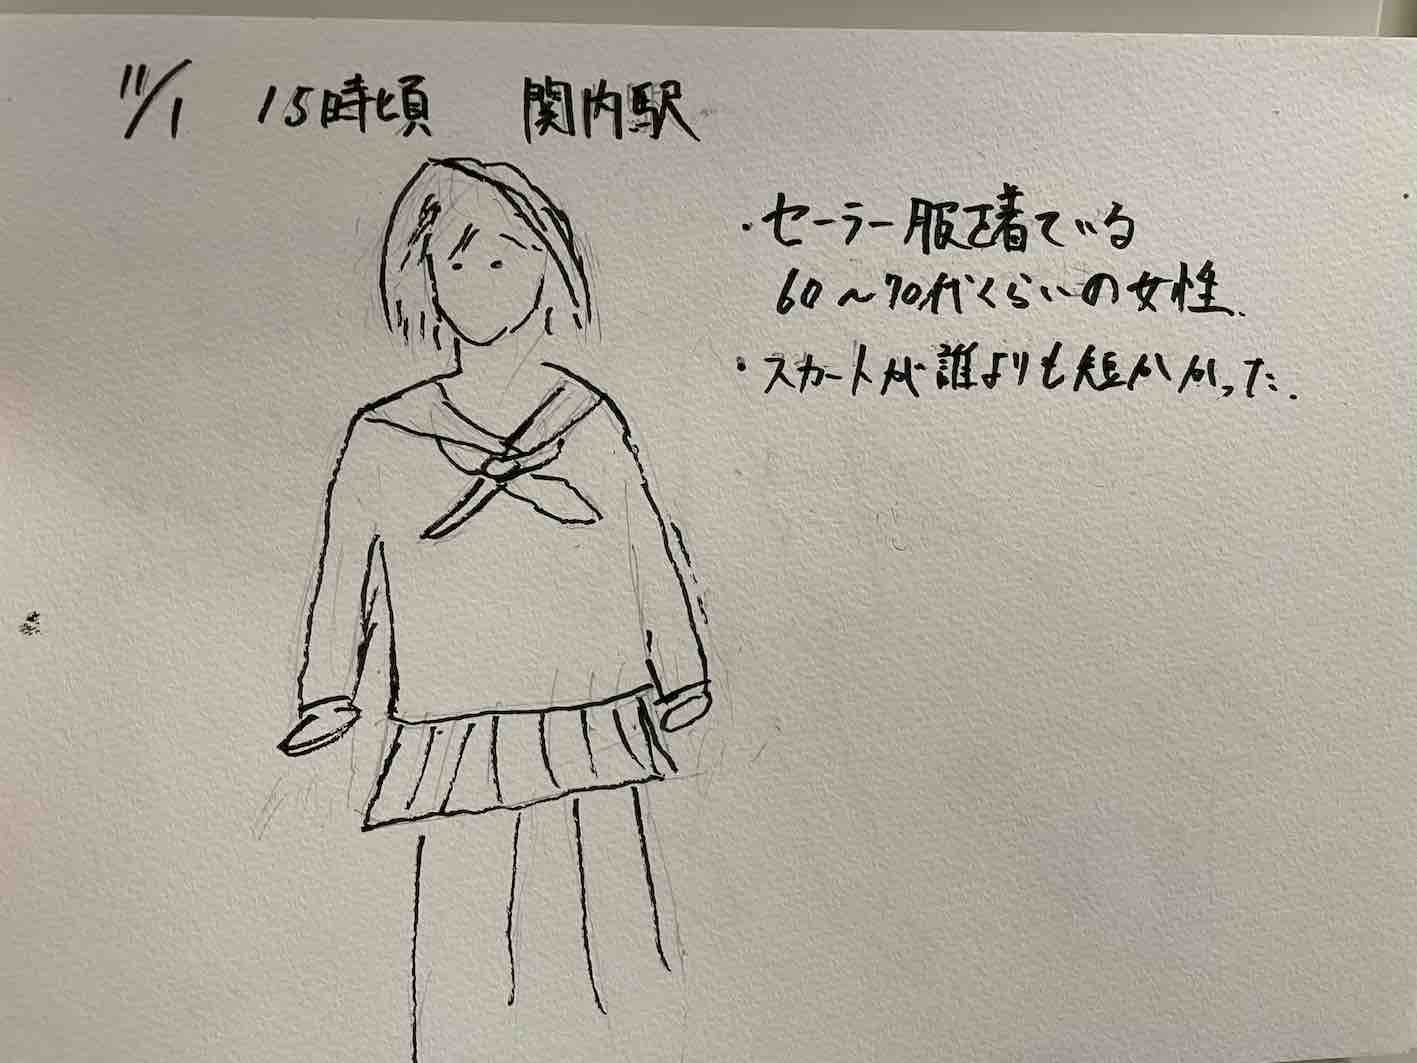 11/1 15時頃 関内駅
・セーラー服を着ている
60〜70代くらいの女性.
・スカートが誰よりも短かかった.